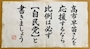 高市早苗さんを
応援するなら、
比例は必ず
「自民党」と
書きましょう